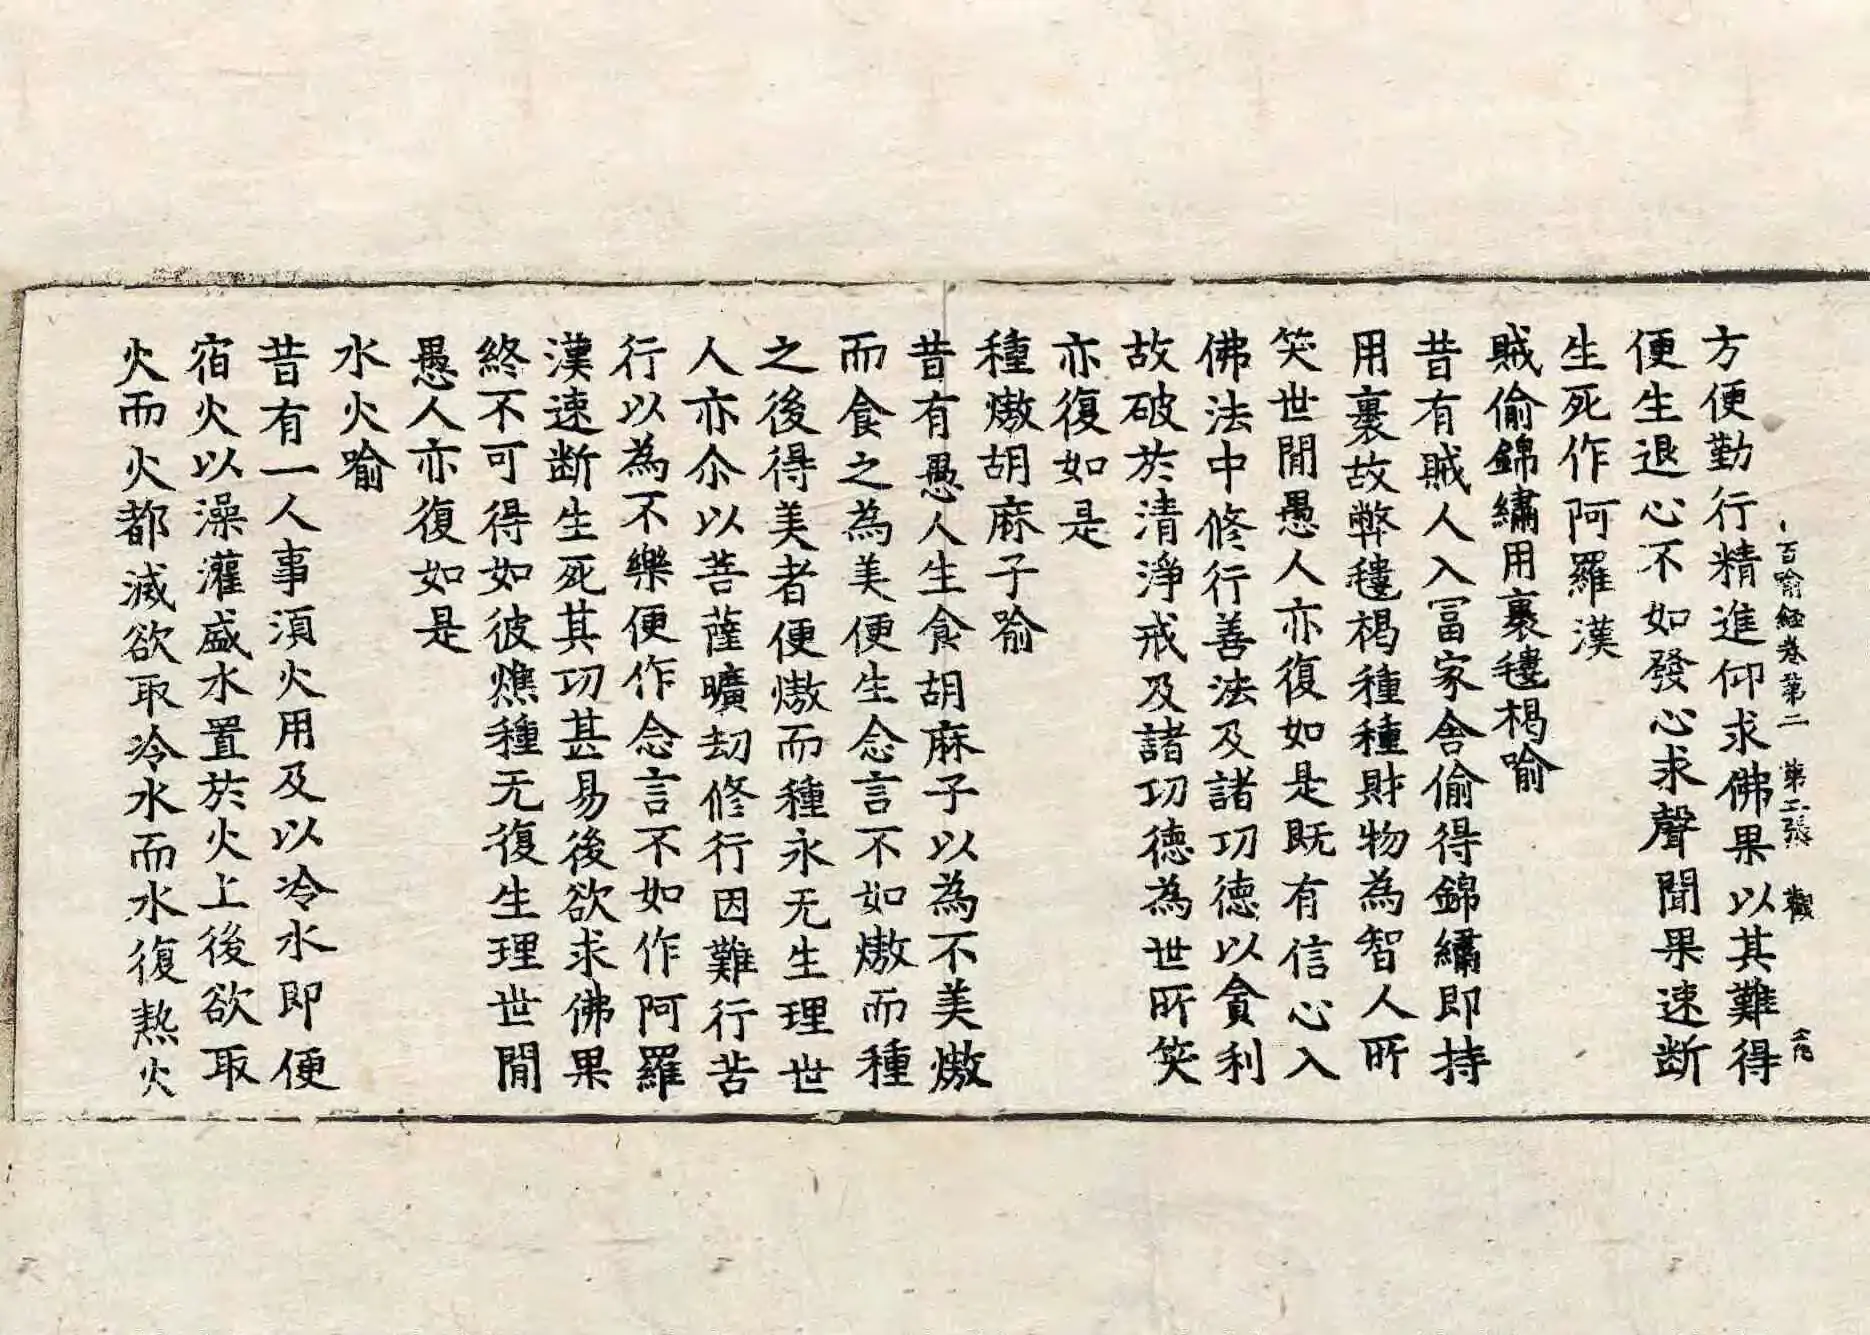 百喻經卷第二 第三張 觀
方便勤行精進仰求佛果以其難得
便生退心不如發心求聲聞果速断
生死作阿羅漢
賊偷錦繡用裹氀褐喻
昔有賊人入冨家舍偷得錦繡即持
用裹故弊氀褐種種財物為智人所
笑世間愚人亦復如是既有信心入
佛法中修行善法及諸功德以貪利
故破於清淨戒及諸功德為世所笑
亦復如是
種熬胡麻子喻
昔有愚人生食胡麻子以為不美熬
而食之為美便生念言不如熬而種
之後得美者便熬而種永无生理世
人亦尒以菩薩曠劫修行因難行苦
行以為不樂便作念言不如作阿羅
漢速断生死其功甚易後欲求佛果
終不可得如彼燋種无復生理世間
愚人亦復如是
水火喻
昔有一人事須火用及以冷水即便
宿火以澡灌盛水置於火上後欲取
火而火都滅欲取冷水而水復熱火